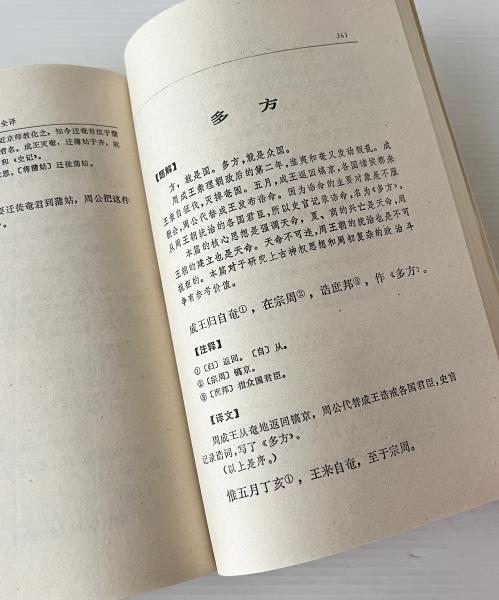 全译
近京师教化之，知今迁奄君臣于蒲
君名。成王灭奄，迁蒲姑于齐，就
和《史记》。
〔将蒲姑〕迁徙蒲姑。
迁徙奄君到蒲姑，周公把这件
361
多方
【题解】
方，就是国。多方，就是众国。
周成王亲理朝政后的第二年，淮夷和奄又发动叛乱。成
王亲自征伐，灭掉奄国。五月，成王返回镐京，各国诸侯都来
朝会，周公代替成王发布诰命。因为诰命的主要对象是不服
从周王朝统治的各国君臣，所以史官记录诰命，名为《多方》。
本篇的核心思想是强调天命，夏、商的兴亡是天命，周
王朝的建立也是天命。天命不可违，周王朝的统治也是不可
抗拒的。本篇对于研究上古神权思想和周初复杂的政治斗
争有参考价值。
成王归自奄①，在宗周②，诰庶邦③，作《多方》。
【注释】
①〔归〕返回。〔自〕从。
②〔宗周〕镐京。
③〔庶邦〕指众国君臣。
【译文】
周成王从奄地返回镐京，周公代替成王诰戒各国君臣，史官
记录诰词，写了《多方》。
（以上是序。）
惟五月丁亥①，王来自奄，至于宗周。